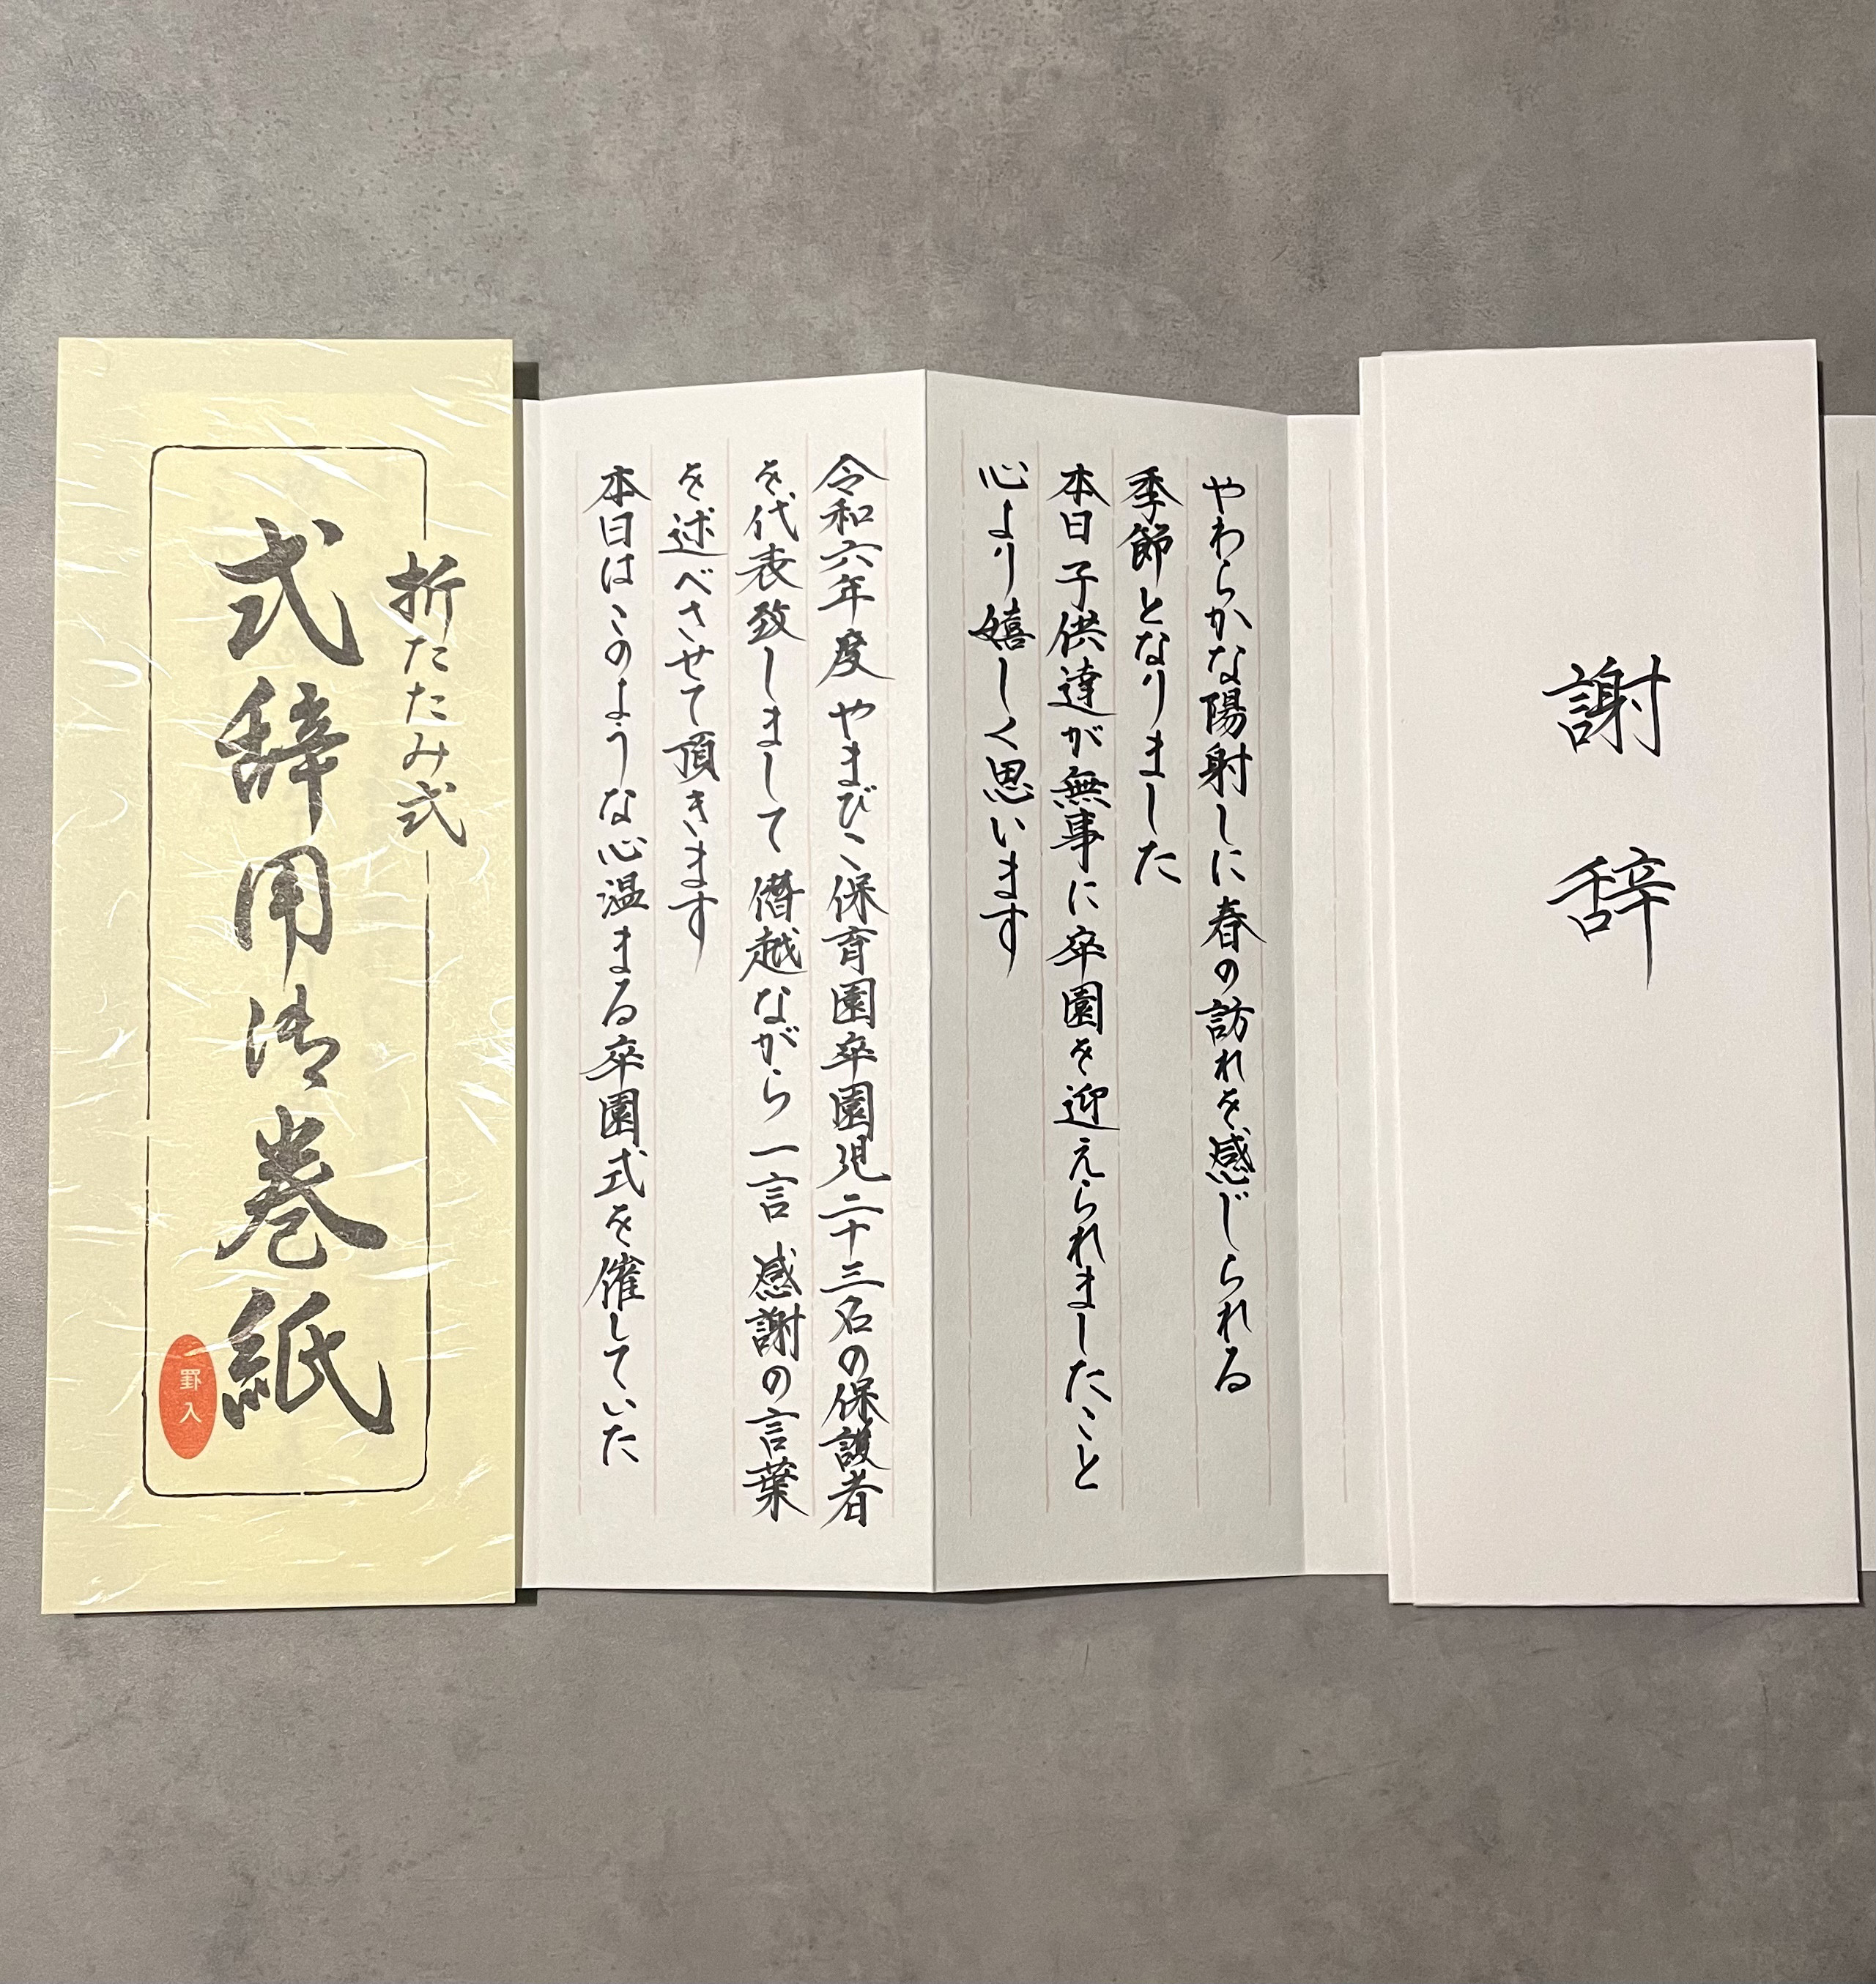 謝辞
やわらかな陽射しに春の訪れを感じられる
季節となりました
本日子供達が無事に卒園を迎えられましたこと
心より嬉しく思います
令和六年度 やまびこ保育園卒園児二十三名の保護者
を代表致しまして 僭越ながら 一言 感謝の言葉
を述べさせて頂きます
本日はこのような心温まる卒園式を催していた
折たたみ式
式辞用御巻紙
罫入